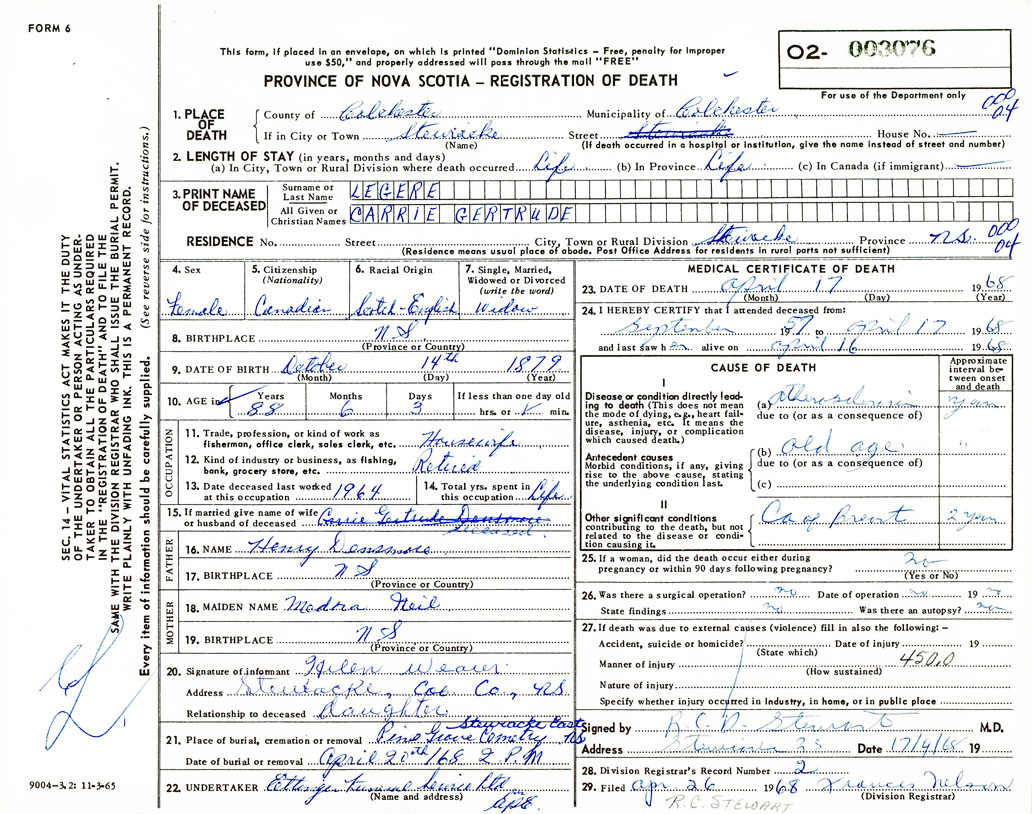 FORM 6
This form, if placed in an envelope, on which is printed "Dominion Statistics – Free, penalty for improper
use $50," and properly addressed will pass through the mail "FREE"
PROVINCE OF NOVA SCOTIA – REGISTRATION OF DEATH
O2- 003076
For use of the Department only
000
04
1. PLACE OF DEATH
County of Colchester Municipality of Colchester
If in City or Town Stewiacke Street House No.
(Name) (If death occurred in a hospital or institution, give the name instead of street and number)
2. LENGTH OF STAY (in years, months and days)
(a) In City, Town or Rural Division where death occurred Life (b) In Province Life (c) In Canada (if immigrant)
3. PRINT NAME OF DECEASED
Surname or Last Name LEGERE
All Given or Christian Names CARRIE GERTRUDE
RESIDENCE No. Street City, Town or Rural Division Stewiacke Province N.S. 000 04
(Residence means usual place of abode. Post Office Address for residents in rural parts not sufficient)
4. Sex Female
5. Citizenship (Nationality) Canadian
6. Racial Origin Scotch-English
7. Single, Married, Widowed or Divorced (write the word) Widow
8. BIRTHPLACE N.S.
(Province or Country)
9. DATE OF BIRTH October 14th 1879
(Month) (Day) (Year)
10. AGE in Years 88 Months 6 Days 3 If less than one day old hrs. or min.
OCCUPATION
11. Trade, profession, or kind of work as fisherman, office clerk, sales clerk, etc. Housewife
12. Kind of industry or business, as fishing, bank, grocery store, etc. Retired
13. Date deceased last worked at this occupation 1964
14. Total yrs. spent in this occupation Life
15. If married give name of wife or husband of deceased Carrie Gertrude Densmore
deceased
FATHER
16. NAME Henry Densmore
17. BIRTHPLACE N S
(Province or Country)
MOTHER
18. MAIDEN NAME Medora Neil
19. BIRTHPLACE N S
(Province or Country)
20. Signature of informant Helen Weaver
Address Stewiacke, Col Co., N.S.
Relationship to deceased Daughter
21. Place of burial, cremation or removal Pine Grove Cemetry Stewiacke East NS
Date of burial or removal April 20th/68 2 P.M
22. UNDERTAKER Ettinger Funeral Service Ltd
(Name and address)
MEDICAL CERTIFICATE OF DEATH
23. DATE OF DEATH April 17 1968
(Month) (Day) (Year)
24. I HEREBY CERTIFY that I attended deceased from:
September 1957 to April 17 1968
and last saw her alive on April 16 1968
CAUSE OF DEATH
Approximate interval between onset and death
I
Disease or condition directly leading to death (This does not mean the mode of dying, e.g., heart failure, asthenia, etc. It means the disease, injury, or complication which caused death.)
(a) Atherosclerosis years
due to (or as a consequence of)
Antecedent causes
Morbid conditions, if any, giving rise to the above cause, stating the underlying condition last.
(b) old age "
due to (or as a consequence of)
(c)
II
Other significant conditions contributing to the death, but not related to the disease or condition causing it.
Ca of Breast 2 years
25. If a woman, did the death occur either during pregnancy or within 90 days following pregnancy? no
(Yes or No)
26. Was there a surgical operation? no Date of operation no 19 no
State findings no Was there an autopsy? no
27. If death was due to external causes (violence) fill in also the following: –
Accident, suicide or homicide? Date of injury 19
(State which)
Manner of injury 450.0
(How sustained)
Nature of injury
Specify whether injury occurred in Industry, in home, or in public place
Signed by R.C.D. Stewart M.D.
Address Stewiacke NS Date 17/4/68 19
28. Division Registrar's Record Number 2
29. Filed Apr. 26 1968 Frances Nelson
(Division Registrar)
R.C. STEWART
SEC. 14 – VITAL STATISTICS ACT MAKES IT THE DUTY
OF THE UNDERTAKER OR PERSON ACTING AS UNDER-
TAKER TO OBTAIN ALL THE PARTICULARS REQUIRED
IN THE "REGISTRATION OF DEATH" AND TO FILE THE
SAME WITH THE DIVISION REGISTRAR WHO SHALL ISSUE THE BURIAL PERMIT.
WRITE PLAINLY WITH UNFADING INK. THIS IS A PERMANENT RECORD.
Every item of information should be carefully supplied. (See reverse side for instructions.)
9004–3.2: 11-3-65